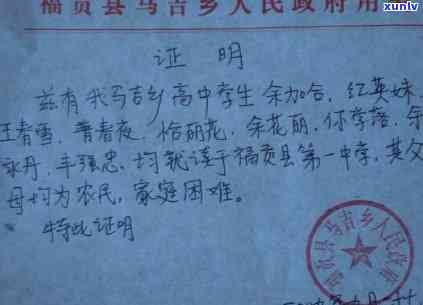 xunlv
www.xunlv.cn
福贡县马吉乡人民政府用
证明
兹有我马吉乡高中学生余加合、红英妹、
王春雪、普春夜、恰丽花、余花丽、你学落、余
永丹、丰强忠,均就读于福贡县第一中学,其父
母均为农民,家庭困难。
特此证明
福贡县马吉乡人民政府